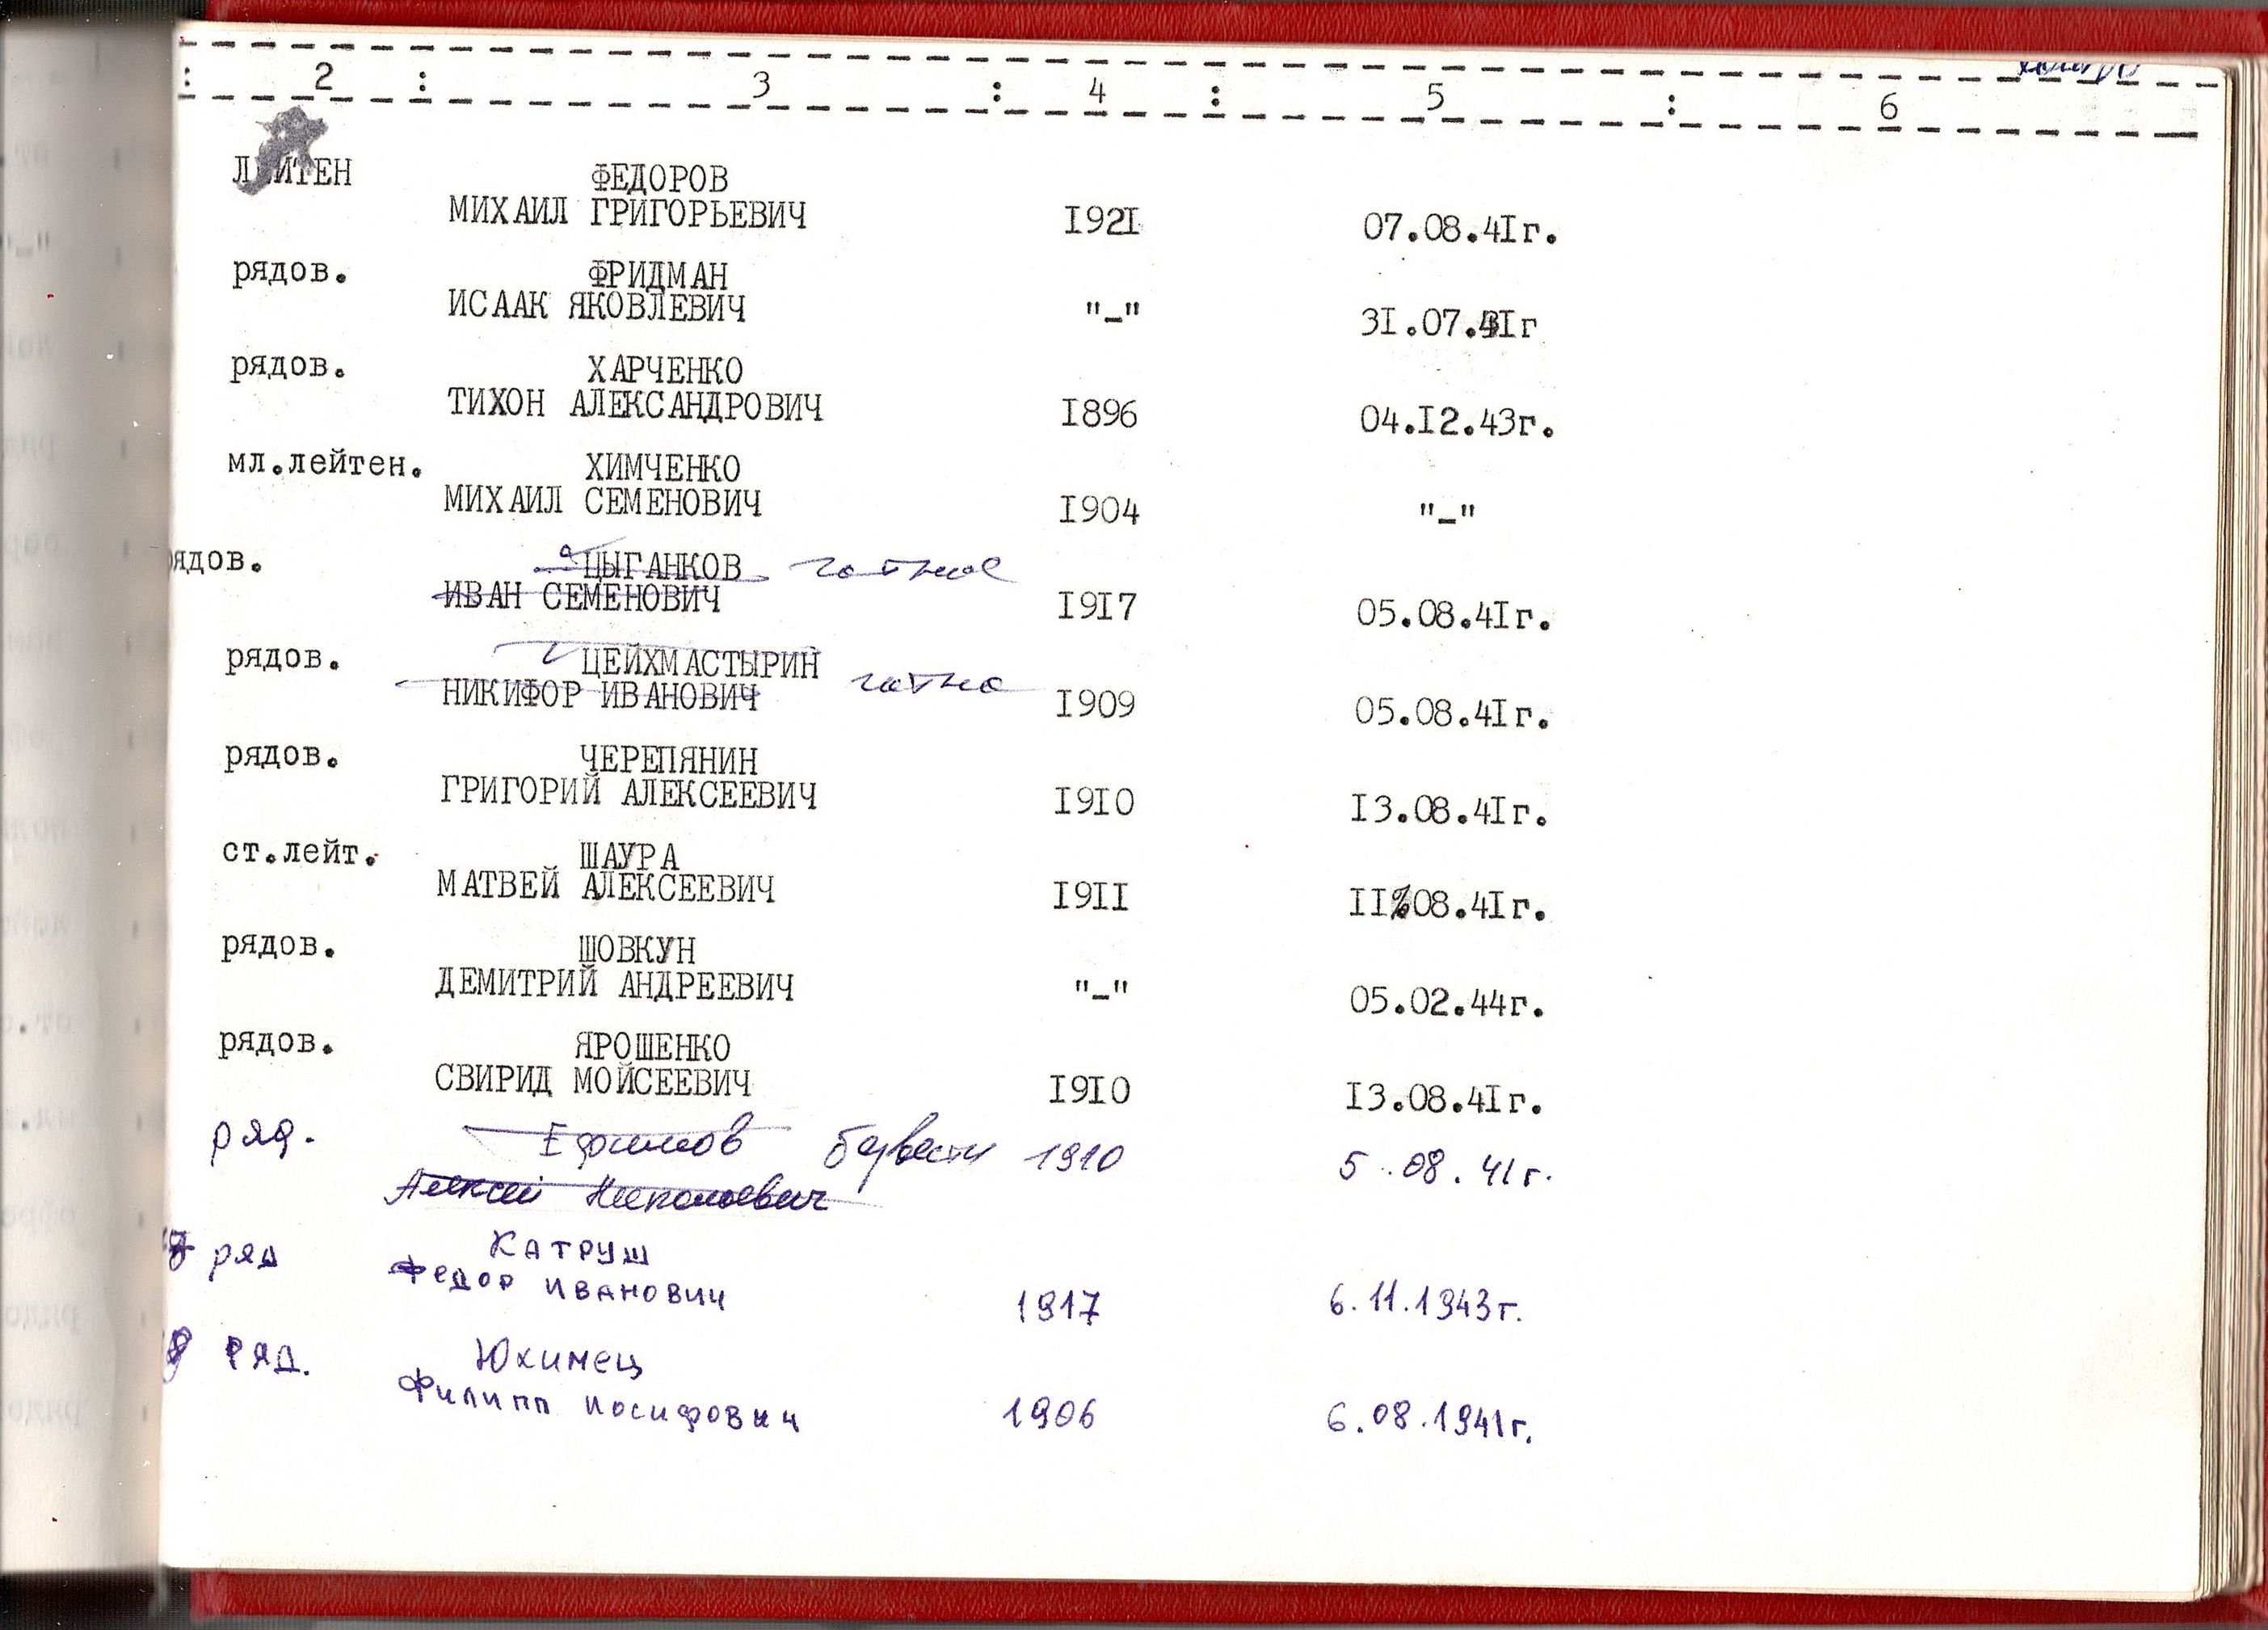 : 2 : 3 : 4 : 5 : 6
ФЕДОРОВ
МИХАИЛ ГРИГОРЬЕВИЧ I92I 07.08.4Iг.
рядов. ФРИДМАН
ИСААК ЯКОВЛЕВИЧ "–" 3I.07.4Iг
рядов. ХАРЧЕНКО
ТИХОН АЛЕКСАНДРОВИЧ I896 04.I2.43г.
мл.лейтен. ХИМЧЕНКО
МИХАИЛ СЕМЕНОВИЧ I904 "–"
рядов. ЦЫГАНКОВ гатное
ИВАН СЕМЕНОВИЧ I9I7 05.08.4Iг.
рядов. ЦЕЙХМАСТЫРИН
НИКИФОР ИВАНОВИЧ гатно I909 05.08.4Iг.
рядов. ЧЕРЕПЯНИН
ГРИГОРИЙ АЛЕКСЕЕВИЧ I9I0 I3.08.4Iг.
ст.лейт. ШАУРА
МАТВЕЙ АЛЕКСЕЕВИЧ I9II II.08.4Iг.
рядов. ШОВКУН
ДЕМИТРИЙ АНДРЕЕВИЧ "–" 05.02.44г.
рядов. ЯРОШЕНКО
СВИРИД МОЙСЕЕВИЧ I9I0 I3.08.4Iг.
ряд. Ефимов безвести 1910 5.08.41г.
Алексей Николаевич
ряд Катруш
Федор Иванович 1917 6.11.1943г.
ряд. Юхимец
Филипп Иосифович 1906 6.08.1941г.